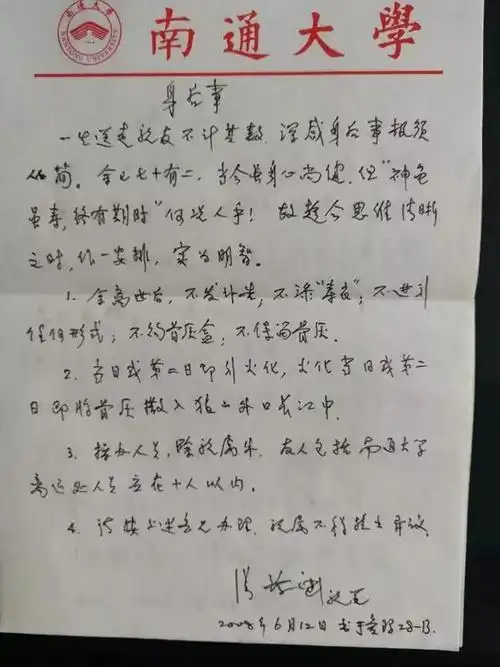 南通大学
NANTONG UNIVERSITY
南通大學
身后事
一生送走亲友不计其数，深感身后事报须
从简。余已七十有二，当今虽身心尚健，但“神龟
虽寿，终有期时”何况人乎！故趁今思维清晰
之时，作一安排，实为明智。
1. 余离世后，不发讣告；不添“寿衣”；不进行
任何形式；不购骨灰盒；不保留骨灰。
2. 当日或第二日即行火化，火化当日或第二
日即将骨灰撒入狼山外口长江中。
3. 接办人员，除亲属外，友人包括南通大学
离退处人员应在十人以内。
4. 请按上述意见办理，亲属不得提出异议
2008年6月12日